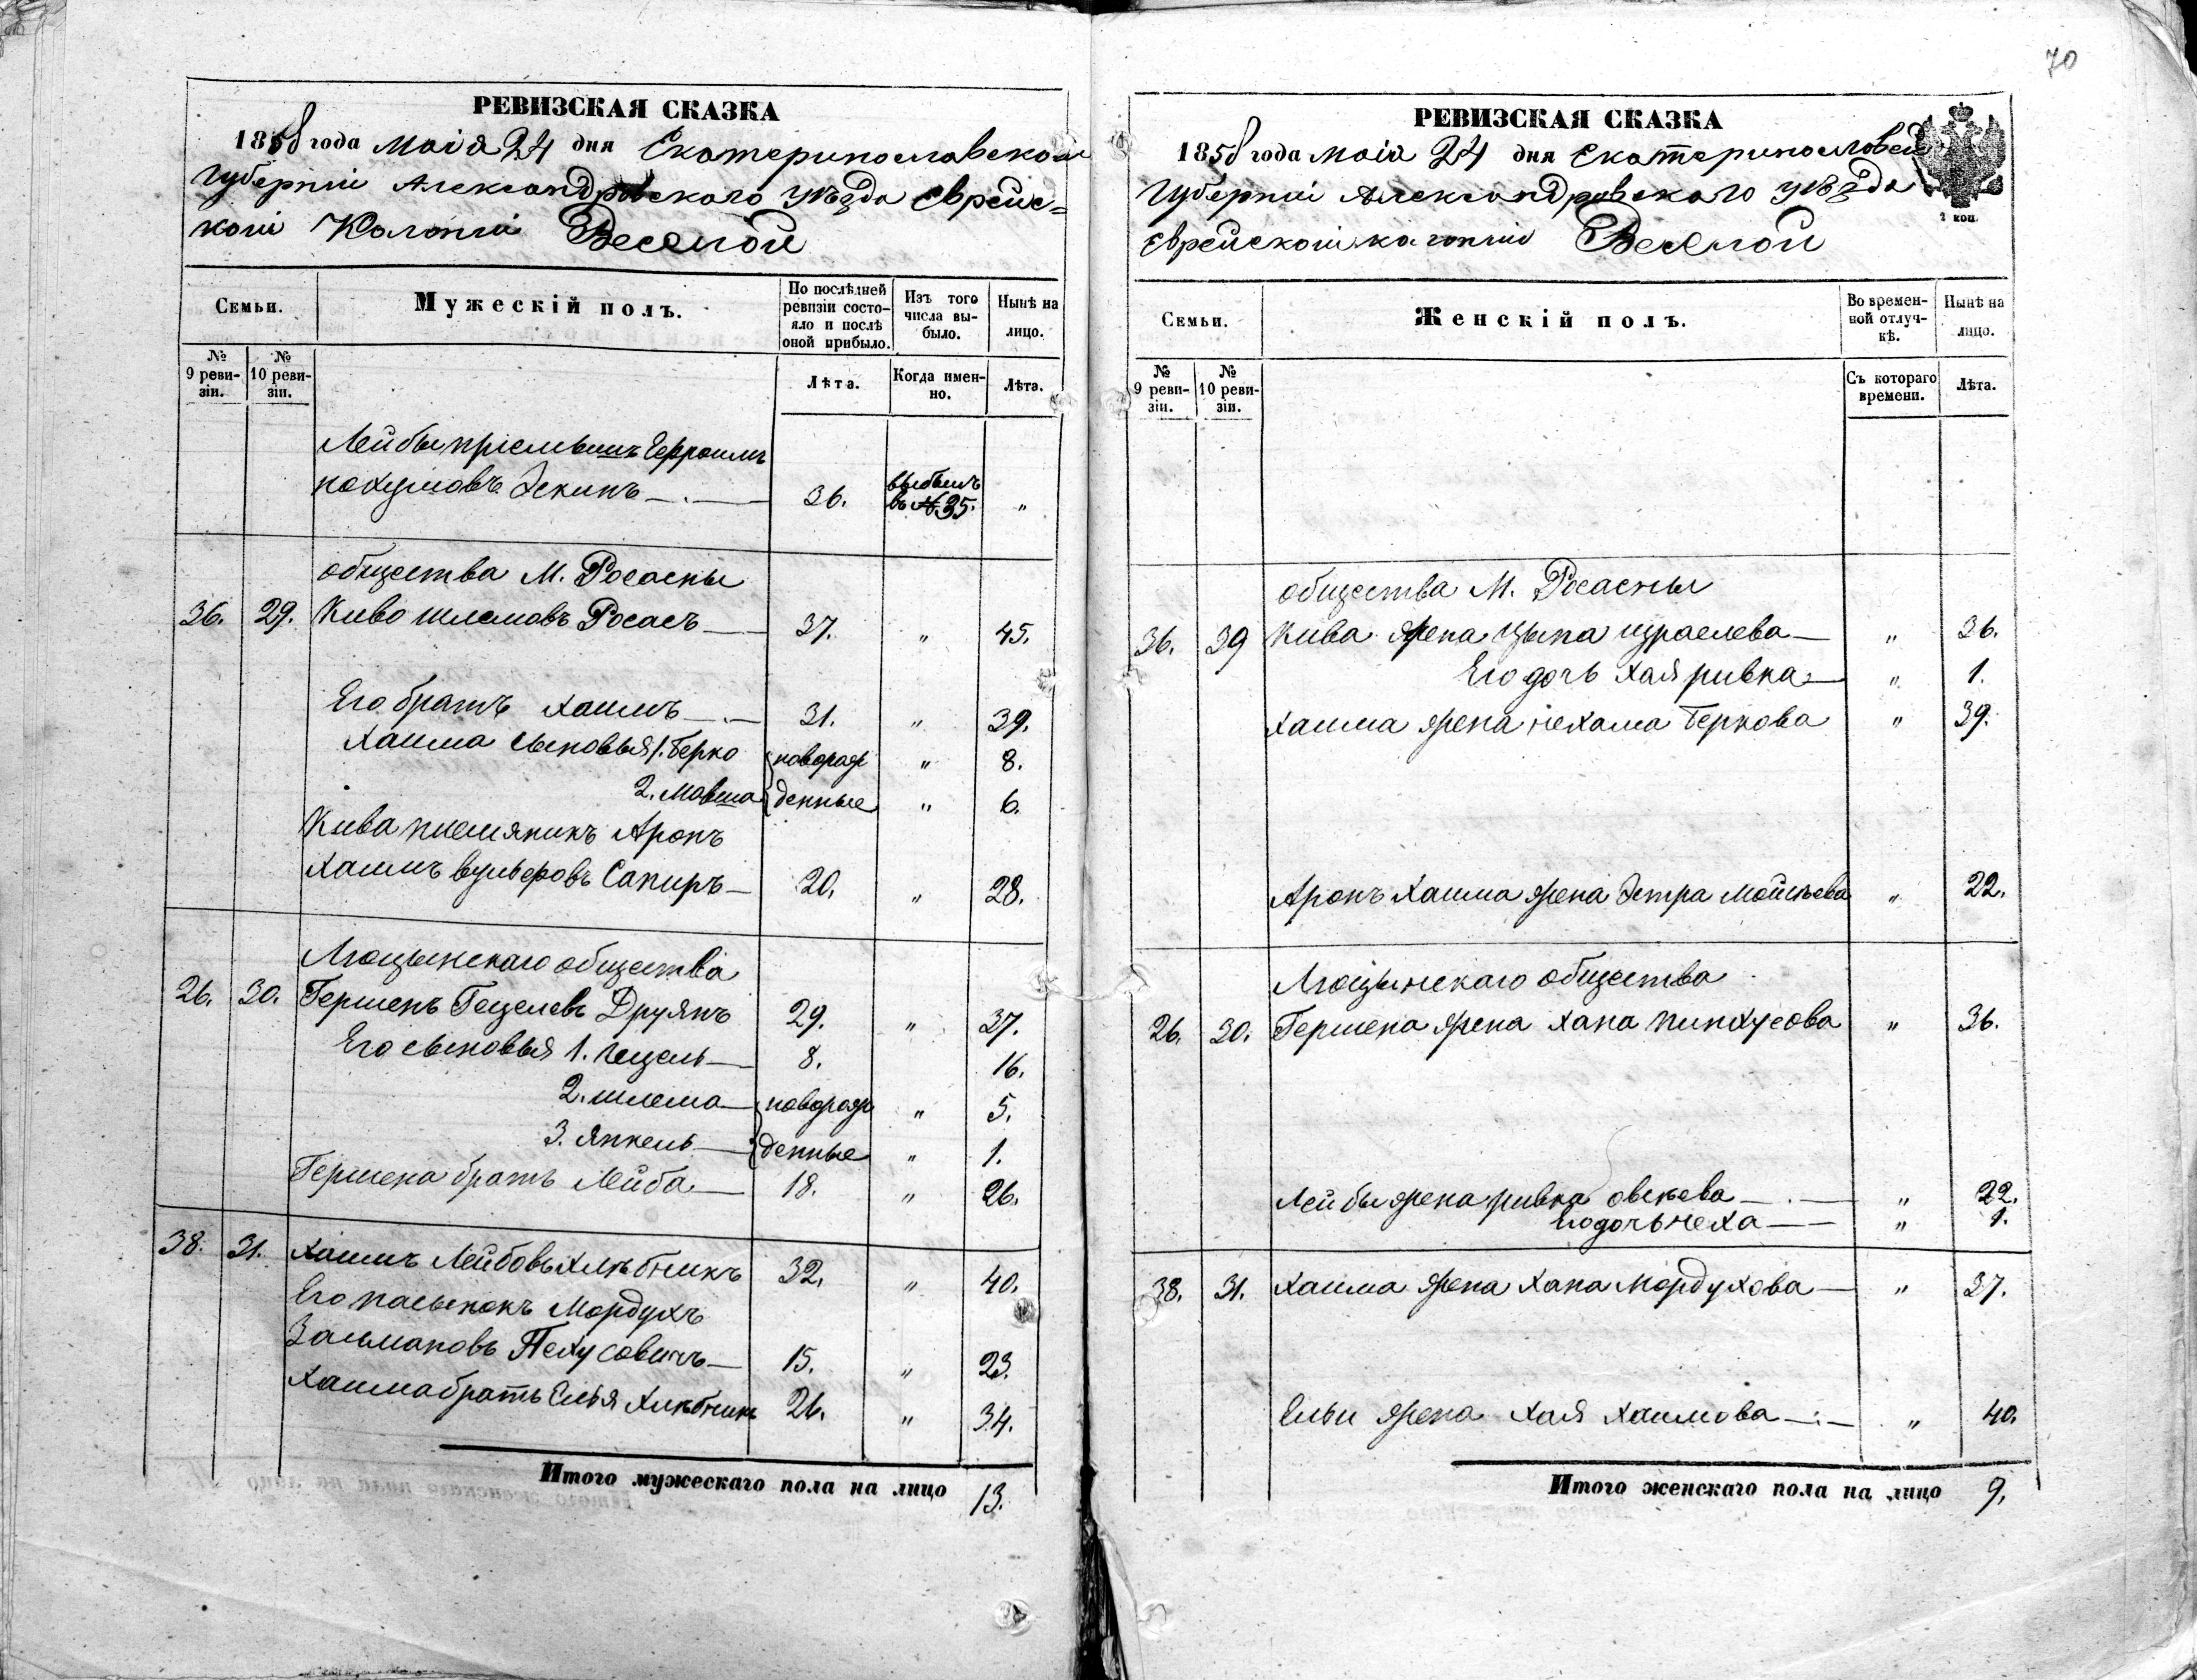 70
РЕВИЗСКАЯ СКАЗКА
1858 года маія 24 дня Екатеринославской
Губерніи Александровскаго уѣзда Еврейс=
кой Колоніи Веселой
Семьи.
Мужескій полъ.
По послѣдней ревизіи состо-яло и послѣ оной прибыло.
Изъ того числа вы-было.
Нынѣ на лицо.
№ 9 реви-зіи.
№ 10 реви-зіи.
Лѣта.
Когда имен-но.
Лѣта.
Лейбы
Нохумовъ Зекинъ 36. выбылъ въ №35. "
общества М. Росасны
36. 29. Кива Шлемовъ Росасъ 37. " 45.
Его братъ Хаимъ 31. " 39.
Хаима сыновья 1. Берко новорож " 8.
2. Мовша денные " 6.
Кива племяникъ Аронъ
Хаимъ Вульфовъ Сапиръ 20. " 28.
Люцынскаго общества
26. 30. Гершенъ Гецелевъ Друянъ 29. " 37.
Его сыновья 1. Гецель 8. 16.
2. Шлема новорож " 5.
3. Янкель денные " 1.
Гершена братъ Лейба 18. " 26.
38. 31. Хаимъ Лейбовъ Хлѣбникъ 32. " 40.
Его пасынокъ Мордухъ
Залмановъ 15. " 23.
Хаима братъ Елья Хлѣбникъ 26. " 34.
Итого мужескаго пола на лицо 13.
РЕВИЗСКАЯ СКАЗКА
1858 года маія 24 дня Екатеринославской
Губерніи Александровскаго уѣзда
Еврейской колоніи Веселой
Семьи.
Женскій полъ.
Во времен-ной отлуч-кѣ.
Нынѣ на лицо.
№ 9 реви-зіи.
№ 10 реви-зіи.
Съ котораго времени.
Лѣта.
общества М. Росасны
36. 39 Кива жена Цыпа Израелева " 36.
Его дочь Хая Ривка " 1.
Хаима жена Нехама Беркова " 39.
Аронъ Хаима жена Эстра Мойсѣева " 22.
Люцынскаго общества
26. 30. Гершена жена Хана Пинхусова " 36.
Лейбы жена Ривка " 22.
Его дочь Неха " 1.
38. 31. Хаима жена Хана Мордухова " 37.
Ельи жена Хая Хаимова " 40.
Итого женскаго пола на лицо 9.